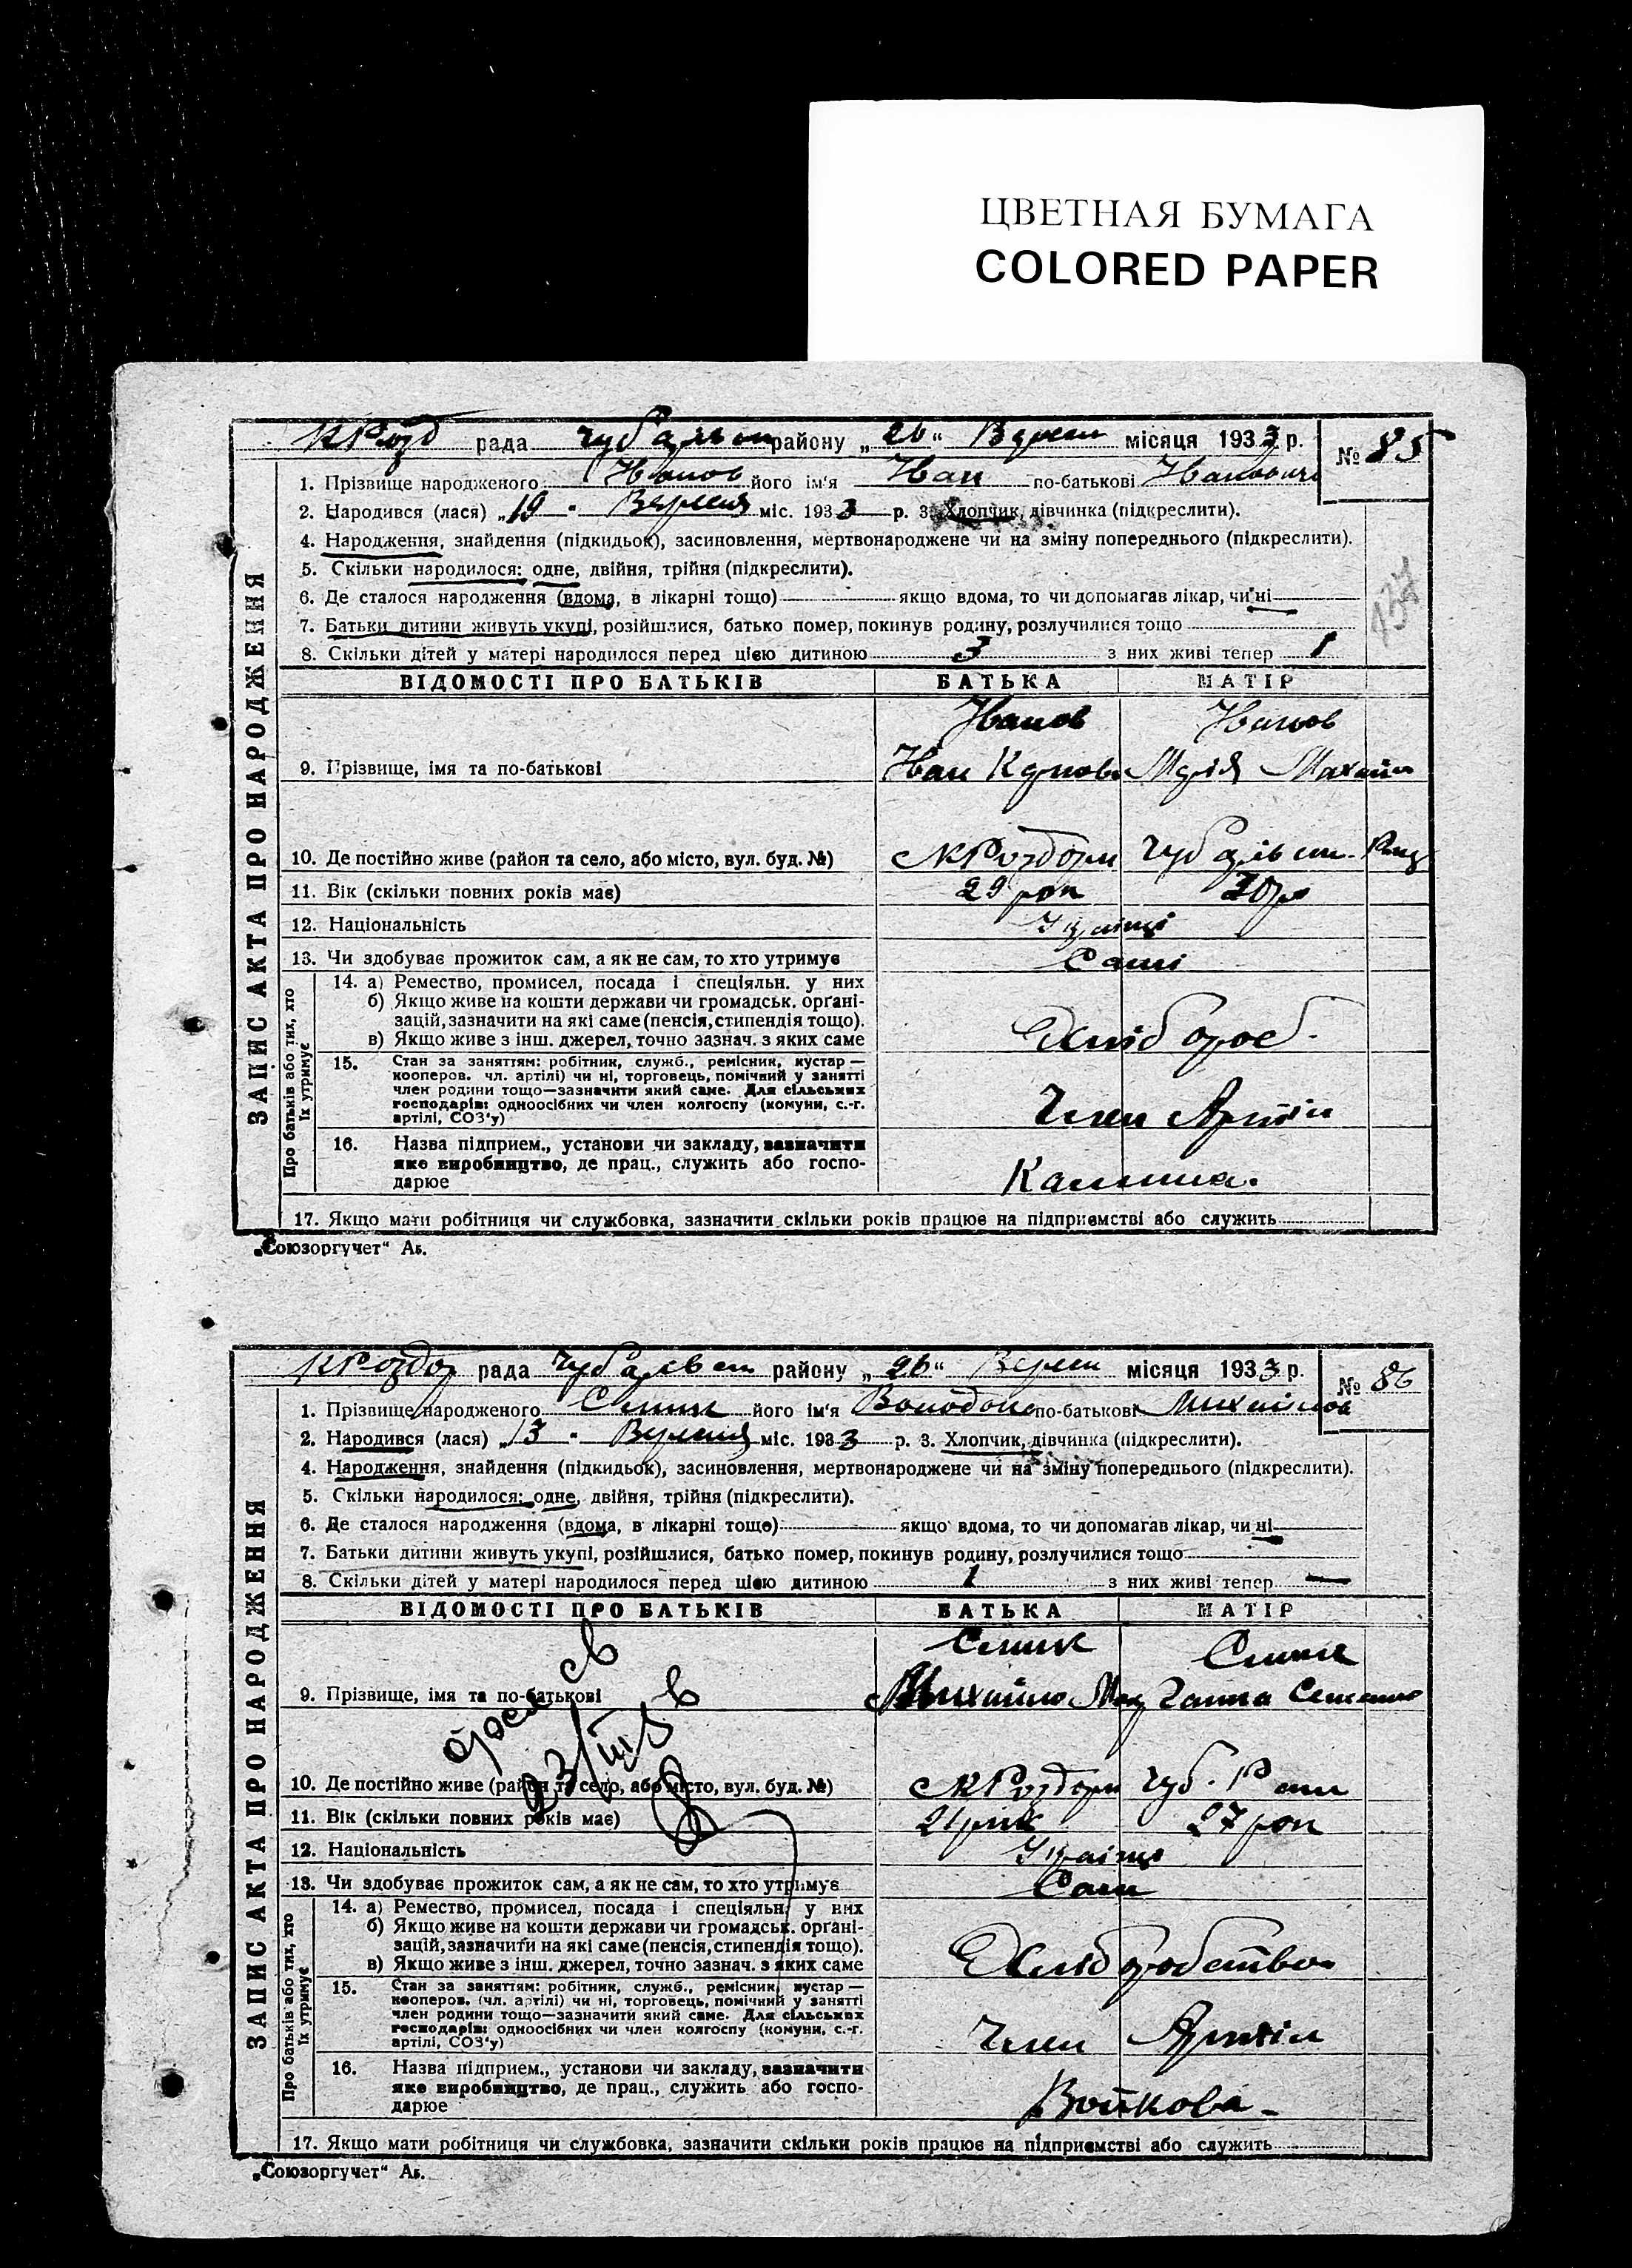 ЦВЕТНАЯ БУМАГА
COLORED PAPER
рада району „26“ місяця 1933 р. № 85
1. Прізвище народженого Іванов його ім'я Іван по-батькові Іванович
2. Народився (лася) „19 " Вересня міс. 1933 р. 3. Хлопчик, дівчинка (підкреслити).
4. Народження, знайдення (підкидьок), засиновлення, мертвонароджене чи на зміну попереднього (підкреслити).
5. Скільки народилося: одне, двійня, трійня (підкреслити).
6. Де сталося народження (вдома, в лікарні тощо) якщо вдома, то чи допомагав лікар, чи ні
7. Батьки дитини живуть укупі, розійшлися, батько помер, покинув родину, розлучилися тощо
137
8. Скільки дітей у матері народилося перед цією дитиною 3 з них живі тепер 1
ЗАПИС АКТА ПРО НАРОДЖЕННЯ
ВІДОМОСТІ ПРО БАТЬКІВ БАТЬКА МАТІР
Іванов Іванов
9. Прізвище, імя та по-батькові Іван Марія
10. Де постійно живе (район та село, або місто, вул. буд. №)
11. Вік (скільки повних років має) 29 рок 30 р
12. Національність
13. Чи здобуває прожиток сам, а як не сам, то хто утримує Самі
Про батьків або тих, хто їх утримує
14. а) Ремество, промисел, посада і спеціяльн. у них
б) Якщо живе на кошти держави чи громадськ. орґані-
зацій, зазначити на які саме (пенсія, стипендія тощо).
в) Якщо живе з інш. джерел, точно зазнач. з яких саме
Хлібороб.
15. Стан за заняттям: робітник, служб., ремісник, кустар —
кооперов. чл. артілі) чи ні, торговець, помічний у занятті
член родини тощо—зазначити який саме. Для сільських
господарів: одноосібних чи член колгоспу (комуни, с.-г.
артілі, СОЗ'у)
Член Артілі
16. Назва підприєм., установи чи закладу, зазначити
яке виробництво, де прац., служить або госпо-
дарює
17. Якщо мати робітниця чи службовка, зазначити скільки років працює на підприємстві або служить
„Союзоргучет“ Аб.
рада району „26“ місяця 1933 р. № 86
1. Прізвище народженого його ім'я по-батькові
2. Народився (лася) „13 " Вересня міс. 1933 р. 3. Хлопчик, дівчинка (підкреслити).
4. Народження, знайдення (підкидьок), засиновлення, мертвонароджене чи на зміну попереднього (підкреслити).
5. Скільки народилося: одне, двійня, трійня (підкреслити).
6. Де сталося народження (вдома, в лікарні тощо) якщо вдома, то чи допомагав лікар, чи ні
7. Батьки дитини живуть укупі, розійшлися, батько помер, покинув родину, розлучилися тощо
8. Скільки дітей у матері народилося перед цією дитиною 1 з них живі тепер —
ЗАПИС АКТА ПРО НАРОДЖЕННЯ
ВІДОМОСТІ ПРО БАТЬКІВ БАТЬКА МАТІР
9. Прізвище, імя та по-батькові Михайло Ганна
10. Де постійно живе (район та село, або місто, вул. буд. №)
11. Вік (скільки повних років має) 27 рок
12. Національність
13. Чи здобуває прожиток сам, а як не сам, то хто утримує Сами
Про батьків або тих, хто їх утримує
14. а) Ремество, промисел, посада і спеціяльн. у них
б) Якщо живе на кошти держави чи громадськ. орґані-
зацій, зазначити на які саме (пенсія, стипендія тощо).
в) Якщо живе з інш. джерел, точно зазнач. з яких саме
Хліборобство
15. Стан за заняттям: робітник, служб., ремісник, кустар —
кооперов. (чл. артілі) чи ні, торговець, помічний у занятті
член родини тощо—зазначити який саме. Для сільських
господарів: одноосібних чи член колгоспу (комуни, с.-г.
артілі, СОЗ'у)
Член Артіли
16. Назва підприєм., установи чи закладу, зазначити
яке виробництво, де прац., служить або госпо-
дарює
Войкова
17. Якщо мати робітниця чи службовка, зазначити скільки років працює на підприємстві або служить
„Союзоргучет“ Аб.